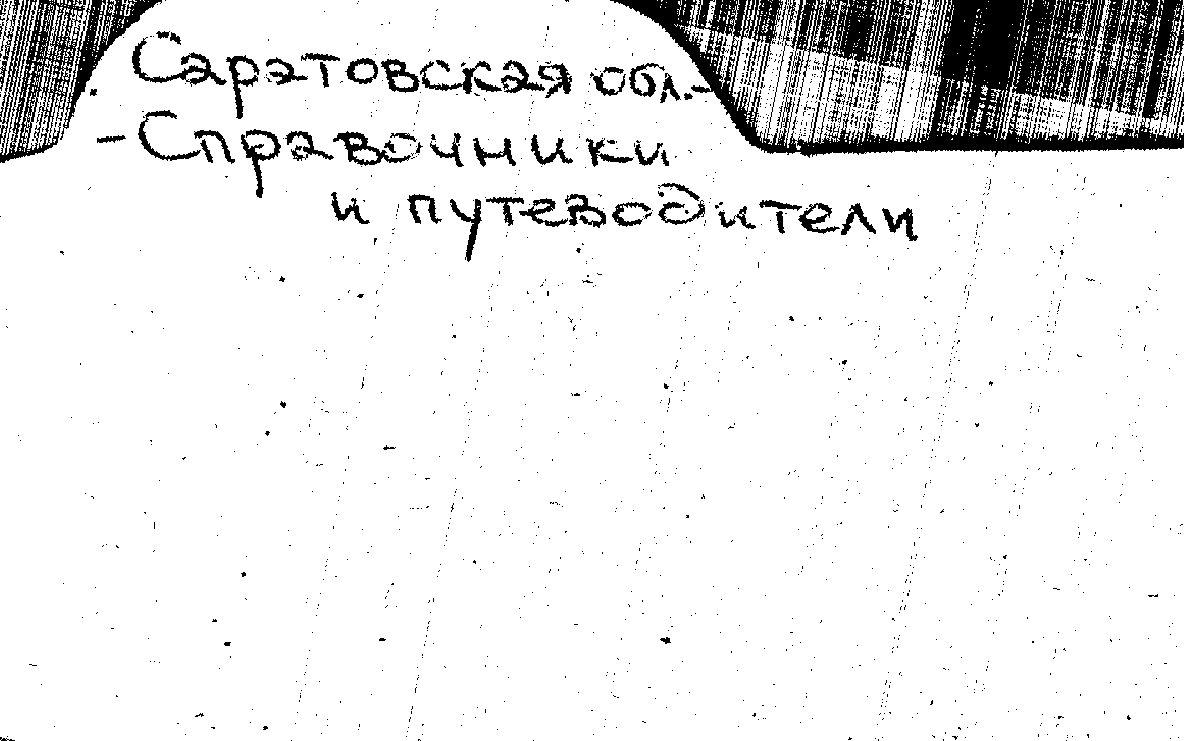 Саратовская обл.-
-Справочники
и путеводители